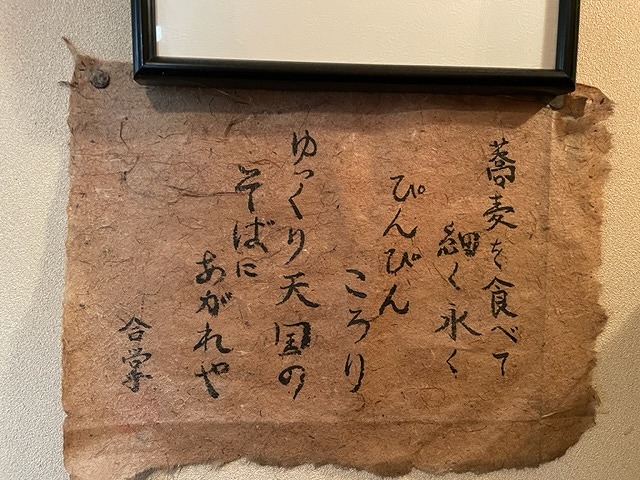 蕎麦を食べて
細く永く
ぴんぴん
ころり
ゆっくり天国の
そばに
あがれや
合掌